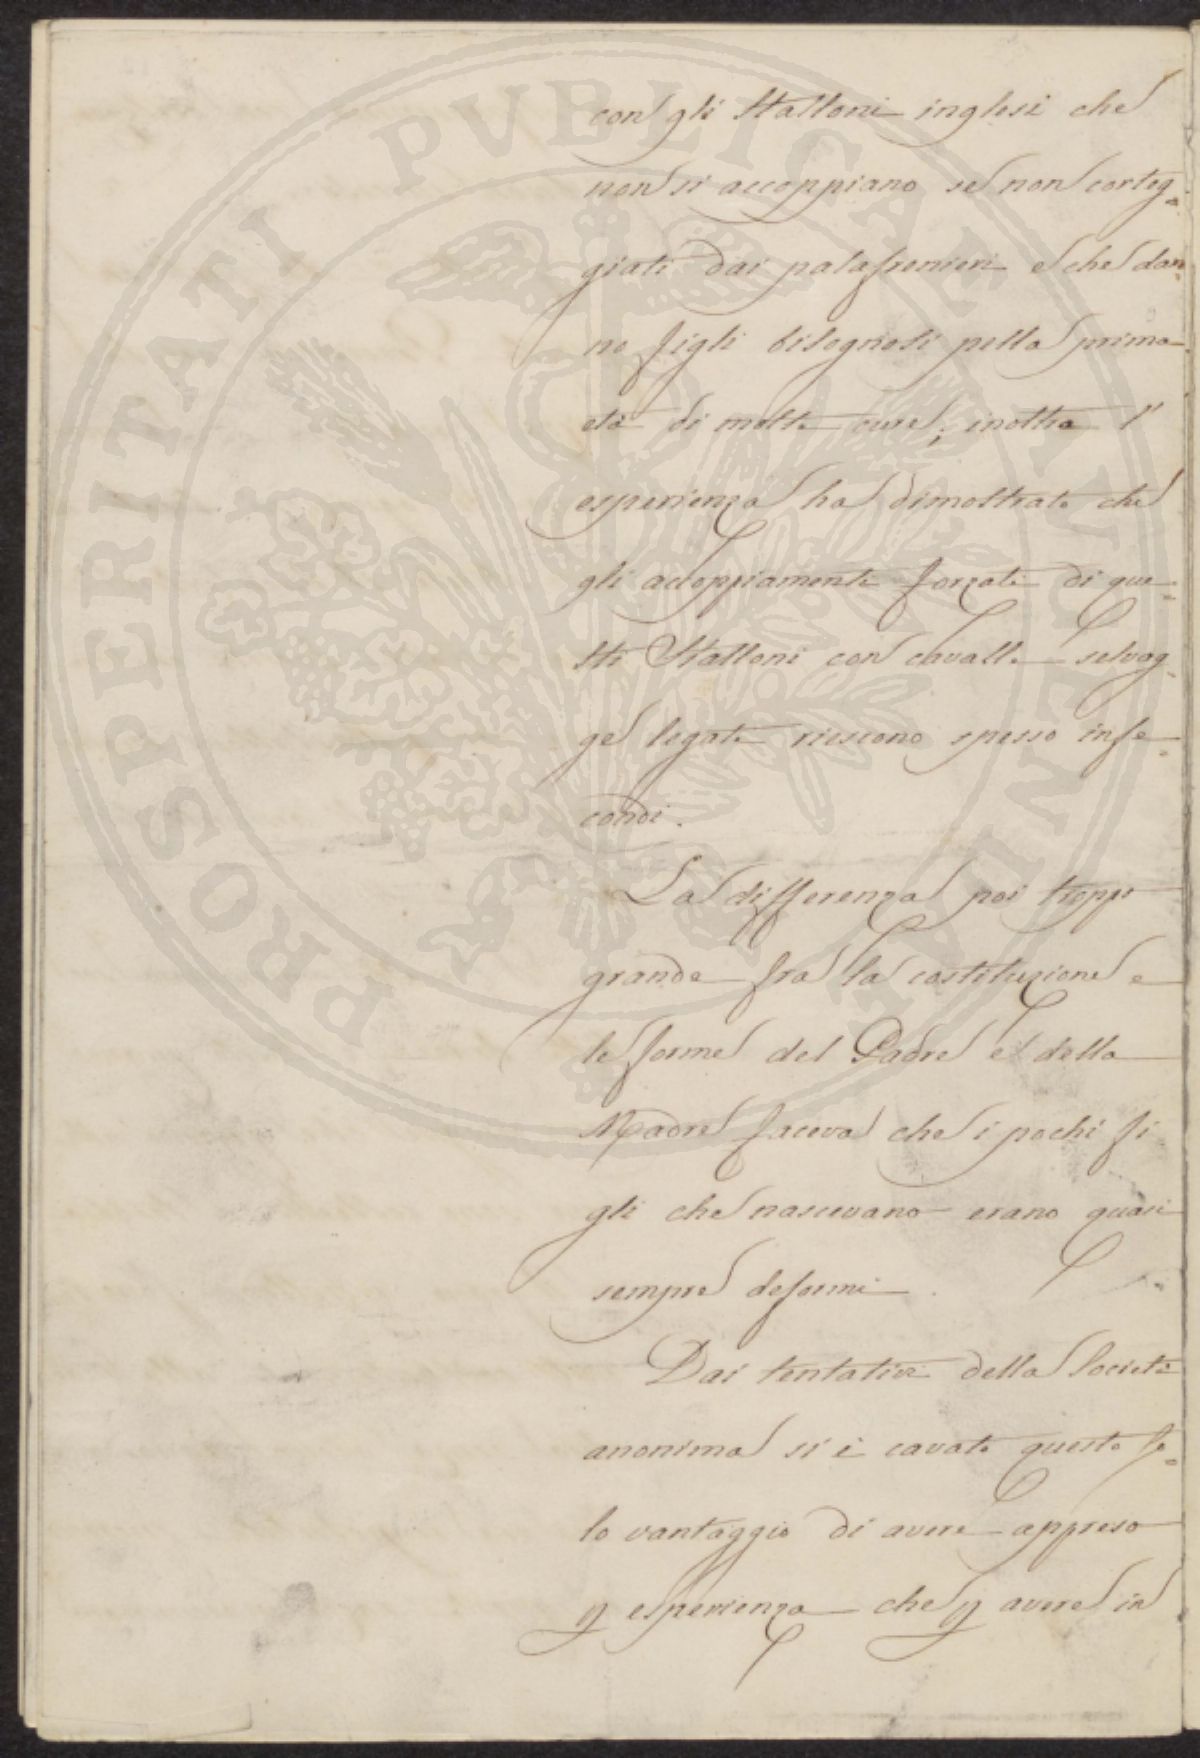 con gli Stalloni inglesi che
non si accoppiano se non corteg=
giati dai palafrenieri e che dan=
no figli bisognosi nella prima
età di molte cure; inoltre l'
esperienza ha dimostrato che
gli accoppiamenti forzati di que=
sti Stalloni con cavalle selvag=
ge legate riescono spesso infe=
condi.
La differenza poi troppo
grande fra la costituzione e
le forme del Padre e della
Madre faceva che i pochi fi
gli che nascevano erano quasi
sempre deformi.
Dai tentativi della Società
anonima si è cavato questo so=
lo vantaggio di avere appreso
p esperienza che p avere in
PROSPERITATI PVBLICAE AVGENDAE